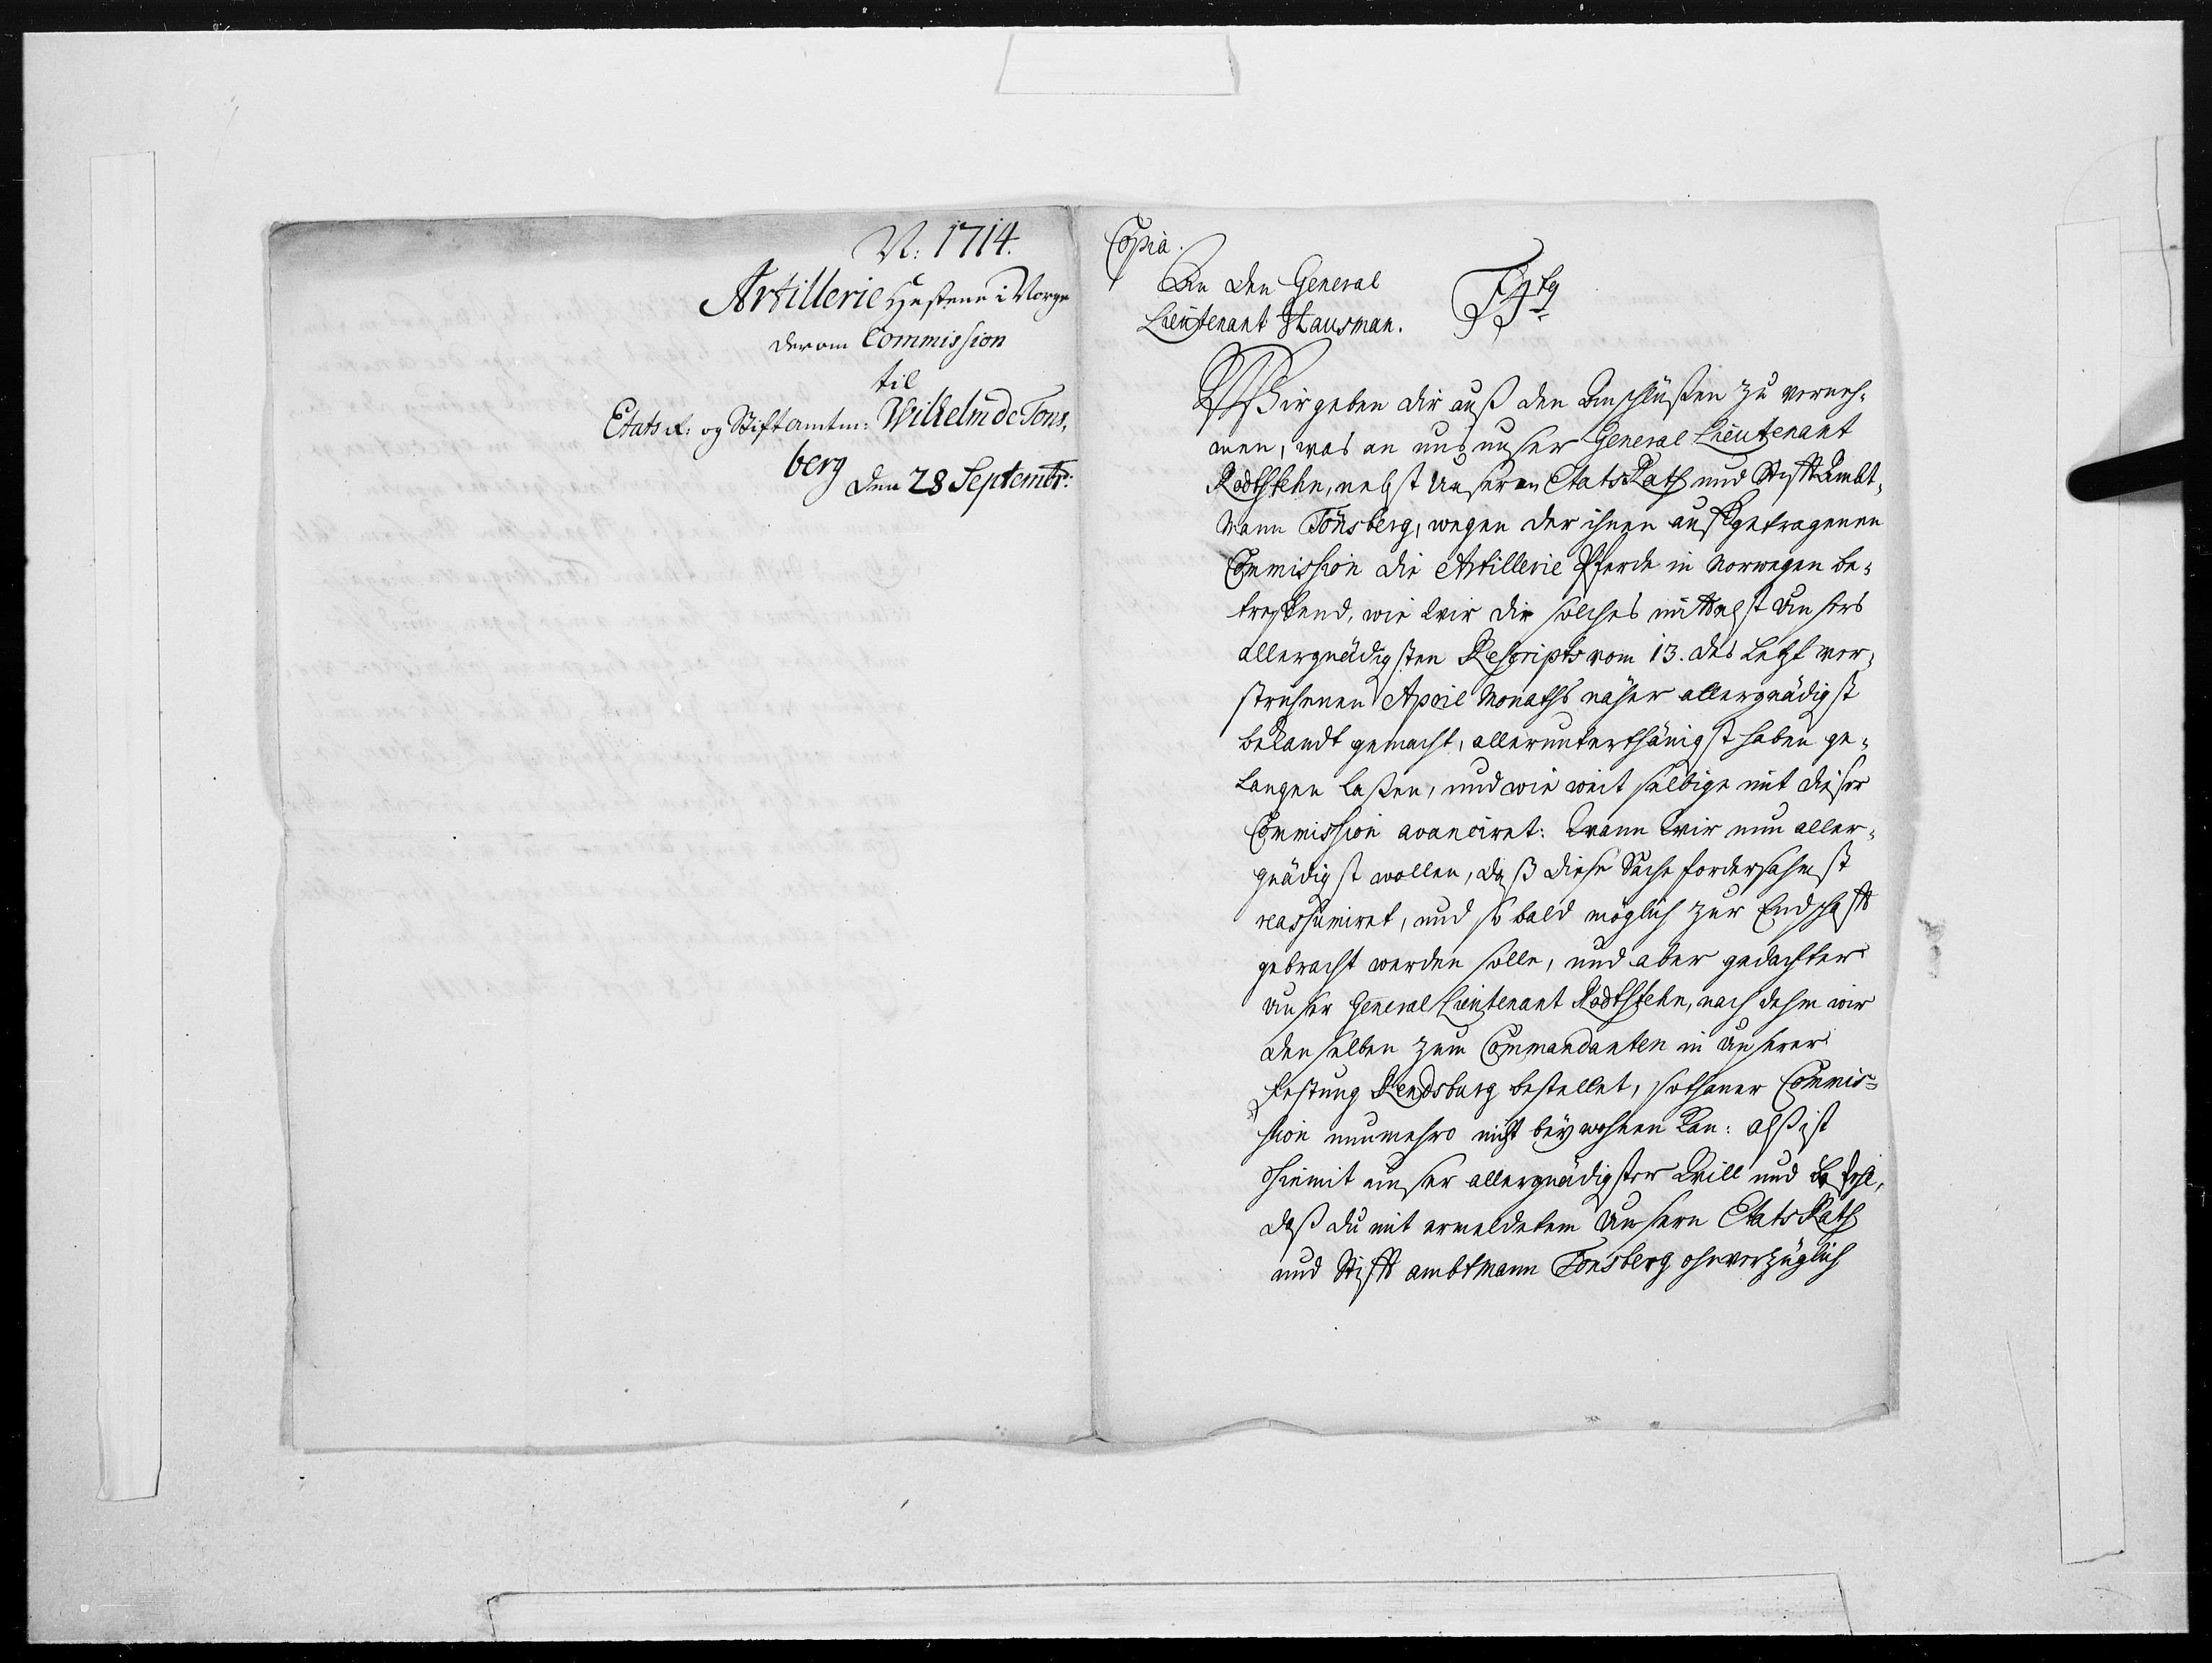 N: 1714.
Artillerie Hestene i Norge
derom Commission
til
Etats R: og Stiftamtm: Wilhelm de Tons,
berg
den 28 Septembr:
Copia.
An den General
Lieutenant Hausman.
F4tg
Wir geben dir auß den Anschlüßen zu verneh,
men, was an uns unser General Lieutenant
Rodtstehn, nebst Unseren Etats Rath und Stifft Ambt,
mann Tönsberg, wegen der ihnen auffgetragenen
Commission die Artillerie Pferde in Norwegen be,
treffend, wie Wir dir solches mittelst Unsers
allergnädigsten Rescripts vom 13. des Letzt ver,
strichenen April Monaths näher allergnädigst
bekandt gemacht, allerunterthänigst haben ge,
langen laßen, und wie weit selbige mit dieser
Commission avanciret: Wann Wir nun aller,
gnädigst wollen, daß diese Sache fordersahmst
reassumiret, und so bald möglich zur Endschafft
gebracht werden solle, und aber gedachter
Unser General Lieutenant Rodtstehn, nach dehm wir
denselben zum Commandanten in Unserer
Festung Rendsburg bestellet, sothaner Commis=
sion nunmehro nicht beywohnen kan: alß ist
hiemit unser allergnädigster Will und Befehl,
daß du mit ermeldetem Unsern Etats Rath
und Stifft ambtmann Tonsberg ohnverzüglich